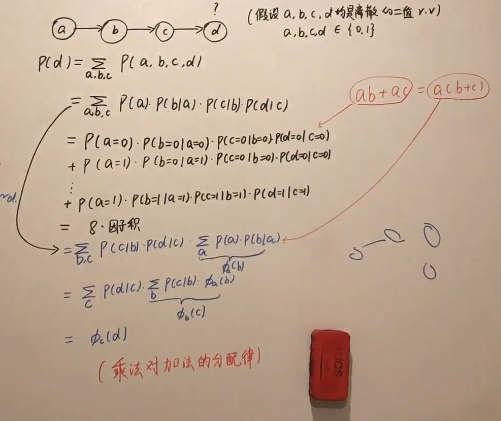 ?
a b c d
(假设 a,b,c,d 均是离散的二值 r.v)
a,b,c,d ∈ {0,1}
P(d) = Σ_{a,b,c} P(a,b,c,d)
= Σ_{a,b,c} P(a)·P(b|a)·P(c|b)·P(d|c)
ab+ac = a(b+c)
= P(a=0)·P(b=0|a=0)·P(c=0|b=0)·P(d=0|c=0)
+ P(a=1)·P(b=0|a=1)·P(c=0|b=0)·P(d=0|c=0)
⋮
+ P(a=1)·P(b=1|a=1)·P(c=1|b=1)·P(d=1|c=1)
= 8·因子积
= Σ_{b,c} P(c|b)·P(d|c)·Σ_a P(a)·P(b|a)
ϕ_a(b)
= Σ_c P(d|c)·Σ_b P(c|b)·ϕ_a(b)
ϕ_b(c)
= ϕ_c(d)
(乘法对加法的分配律)